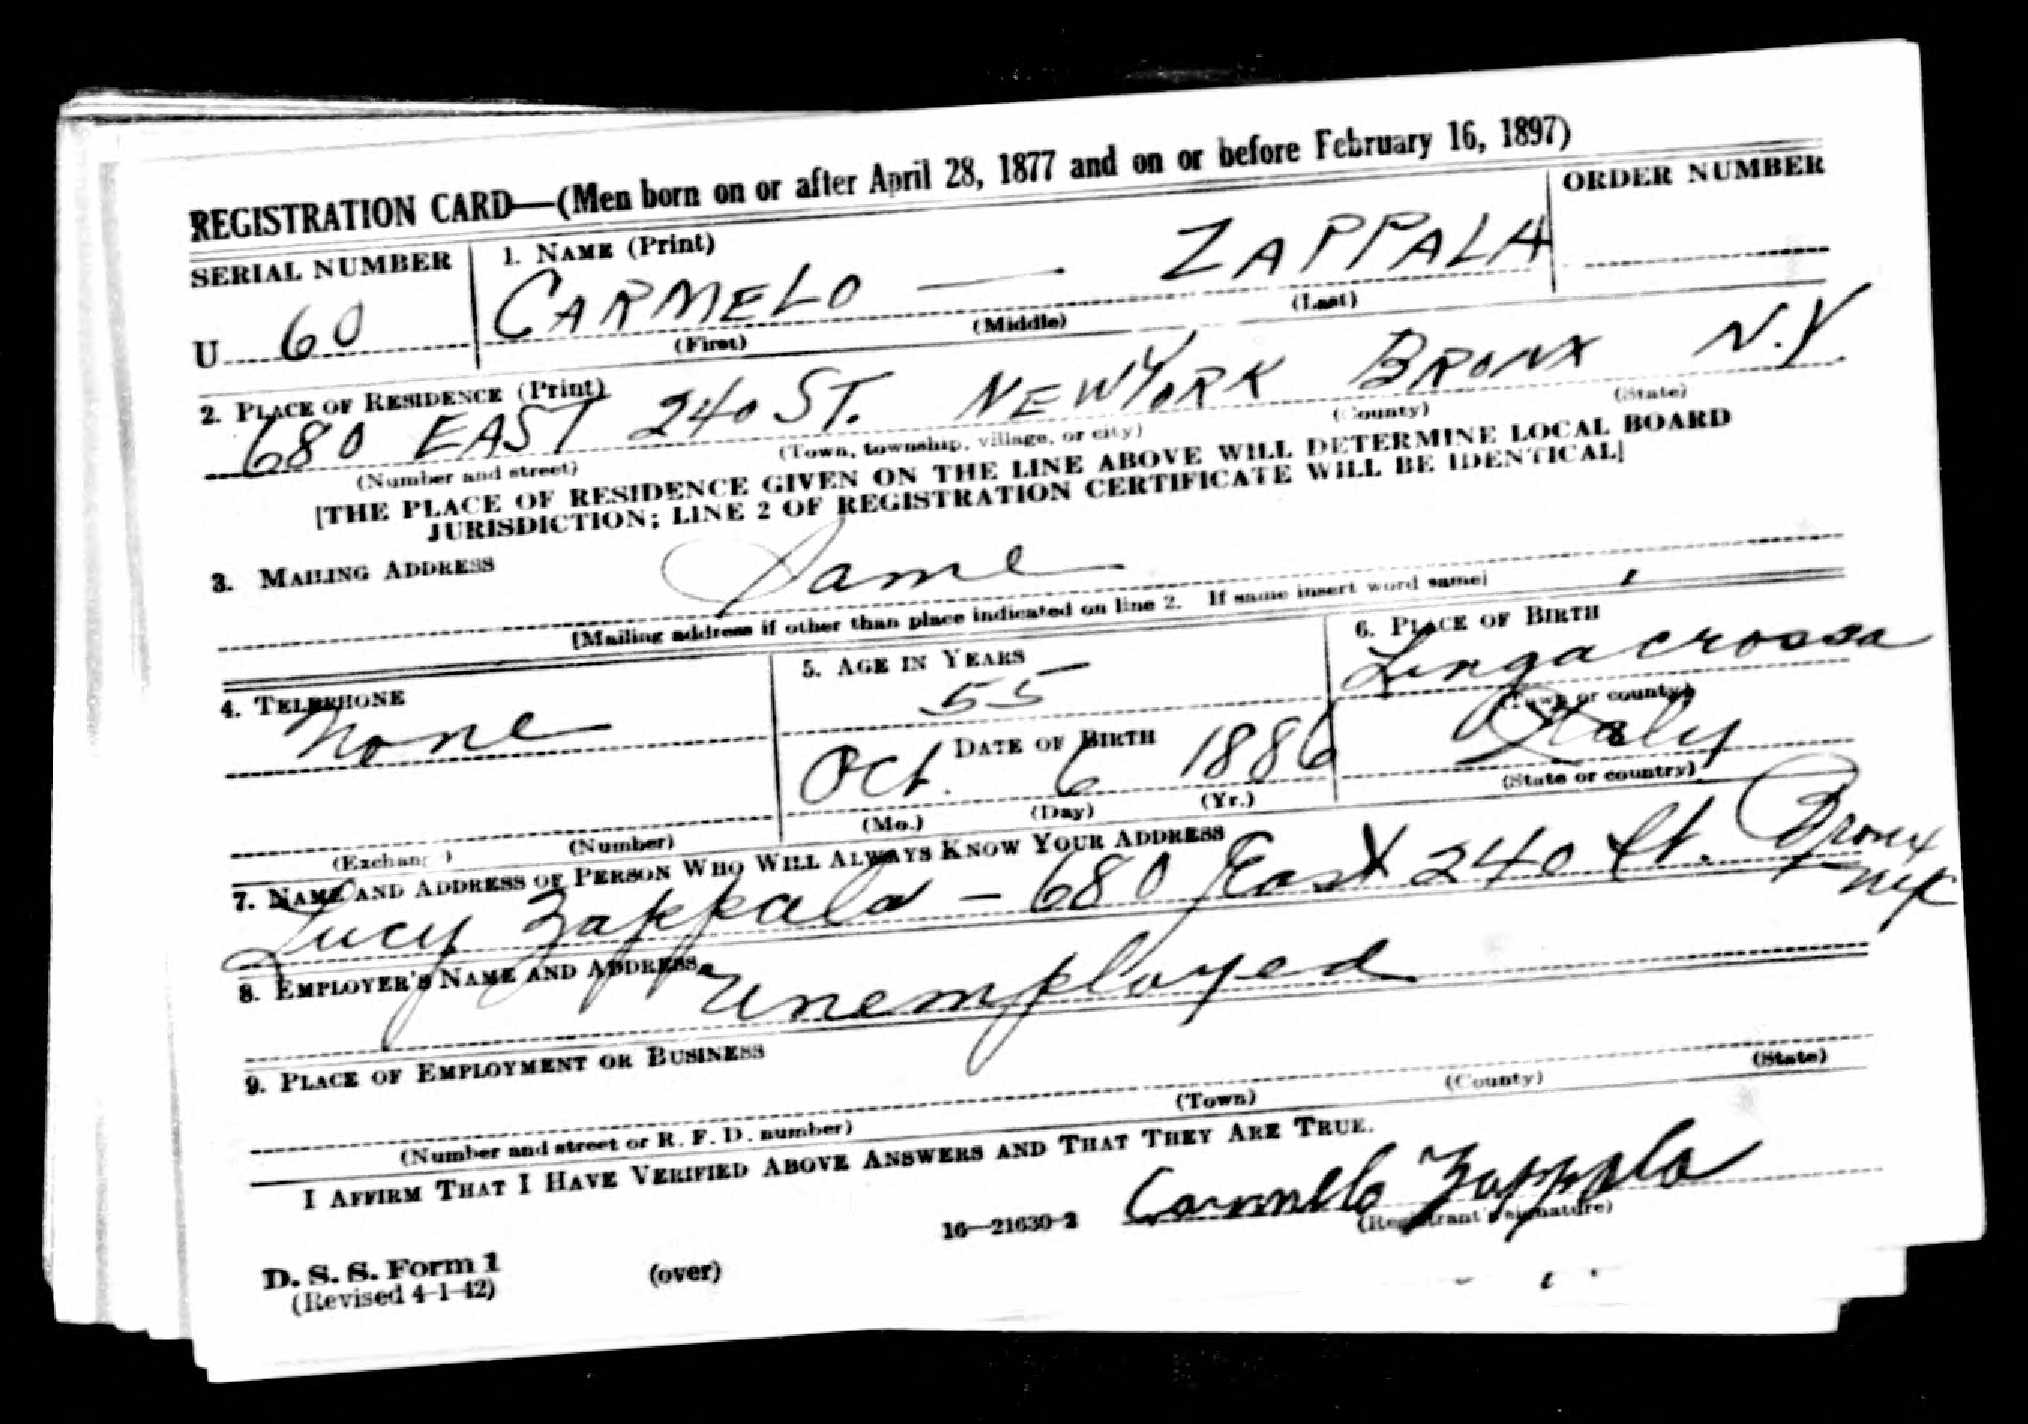 REGISTRATION CARD—(Men born on or after April 28, 1877 and on or before February 16, 1897)
SERIAL NUMBER
1. NAME (Print)
ORDER NUMBER
U 60
CARMELO — ZAPPALA
(First) (Middle) (Last)
2. PLACE OF RESIDENCE (Print)
680 EAST 240 ST. NEW YORK BRONX N.Y
(Number and street) (Town, township, village, or city) (County) (State)
[THE PLACE OF RESIDENCE GIVEN ON THE LINE ABOVE WILL DETERMINE LOCAL BOARD
JURISDICTION; LINE 2 OF REGISTRATION CERTIFICATE WILL BE IDENTICAL]
3. MAILING ADDRESS
Same
[Mailing address if other than place indicated on line 2. If same insert word same]
4. TELEPHONE
None
(Exchange) (Number)
5. AGE IN YEARS
55
DATE OF BIRTH
Oct. 6 1886
(Mo.) (Day) (Yr.)
6. PLACE OF BIRTH
Lingacrossa
(Town or county)
Italy
(State or country)
7. NAME AND ADDRESS OF PERSON WHO WILL ALWAYS KNOW YOUR ADDRESS
Lucy Zappala – 680 East 240 St. Bronx
NY
8. EMPLOYER'S NAME AND ADDRESS
Unemployed
9. PLACE OF EMPLOYMENT OR BUSINESS
(Number and street or R. F. D. number) (Town) (County) (State)
I AFFIRM THAT I HAVE VERIFIED ABOVE ANSWERS AND THAT THEY ARE TRUE.
Carmelo Zappala
(Registrant's signature)
D. S. S. Form 1
(Revised 4-1-42)
(over)
16—21630-2